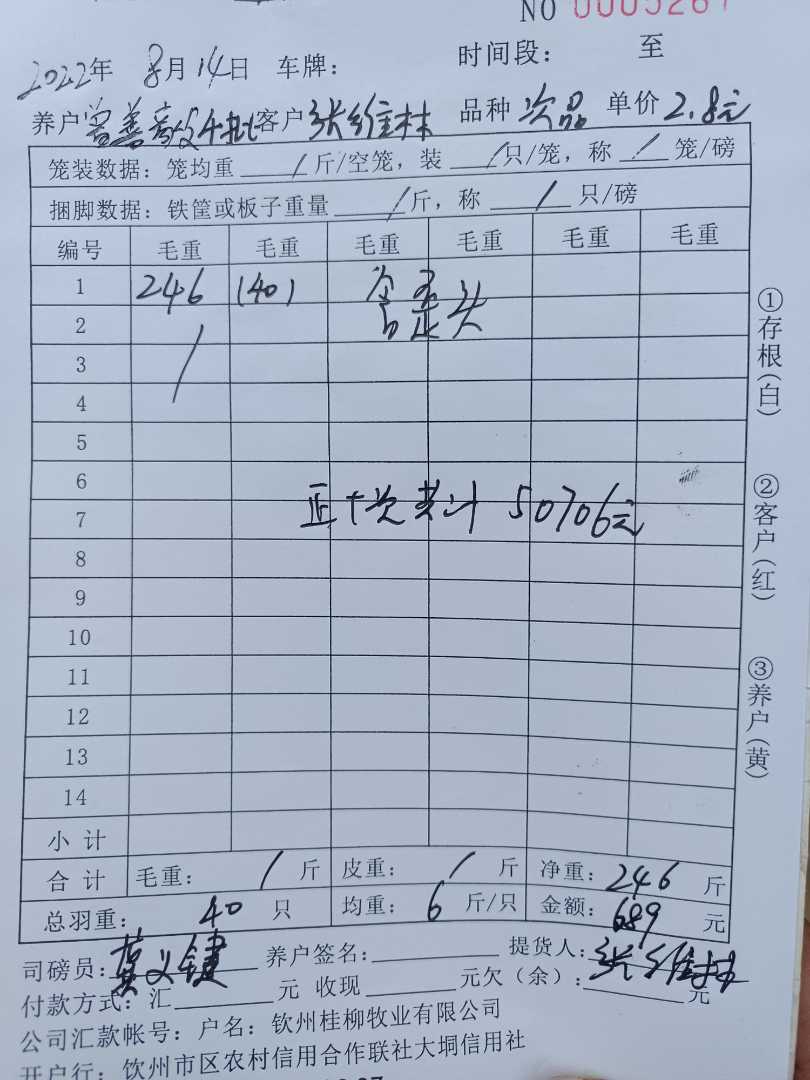 NO 0005267
2022年 8月14日 车牌： 时间段： 至
养户 曾善 4批 客户 张维林 品种 次品 单价 2.8元
笼装数据：笼均重 / 斤/空笼，装 / 只/笼，称 / 笼/磅
捆脚数据：铁筐或板子重量 / 斤，称 / 只/磅
编号 毛重 毛重 毛重 毛重 毛重 毛重
1 246 (40)
2 /
3
4
5
6
7 正+次共计 50706元
8
9
10
11
12
13
14
小计
合计 毛重： / 斤 皮重： / 斤 净重：246 斤
总羽重： 40 只 均重： 6 斤/只 金额：689 元
司磅员： 养户签名： 提货人：张维林
付款方式：汇 元 收现 元欠（余）： 元
公司汇款帐号：户名：钦州桂柳牧业有限公司
开户行：钦州市区农村信用合作联社大垌信用社
①存根（白）
②客户（红）
③养户（黄）